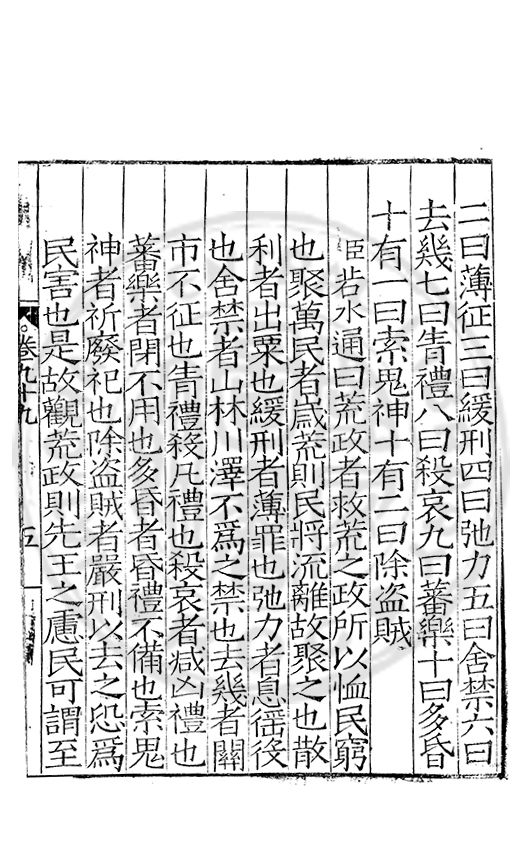 二曰薄征三曰緩刑四曰弛力五曰舍禁六曰
去幾七曰眚禮八曰殺哀九曰蕃樂十曰多昏
十有一曰索鬼神十有二曰除盗賊
臣若水通曰荒政者救荒之政所以恤民窮
也聚萬民者歲荒則民將流離故聚之也散
利者出粟也緩刑者薄罪也弛力者息徭役
也舍禁者山林川澤不為之禁也去幾者關
市不征也眚禮殺凡禮也殺哀者减凶禮也
蕃樂者閉不用也多昏者昏禮不備也索鬼
神者祈廢祀也除盗賊者嚴刑以去之恐為
民害也是故觀荒政則先王之慮民可謂至
卷九十九
五